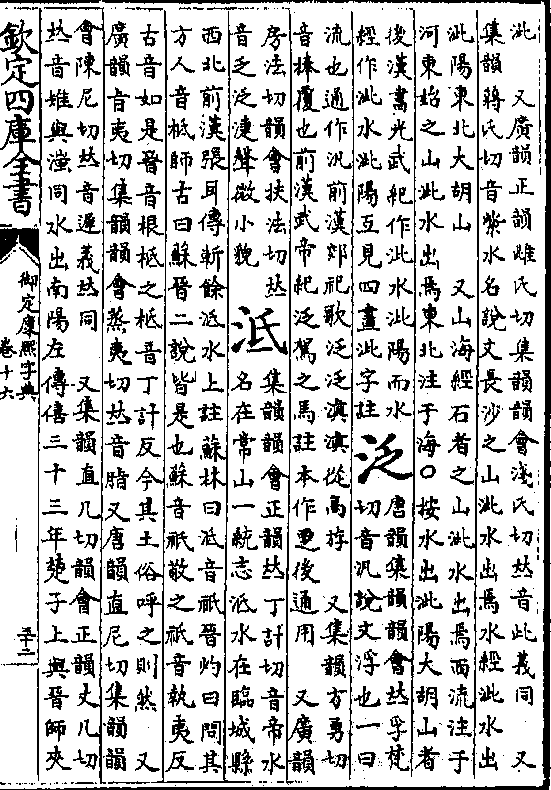 泚　又廣韻正韻雌氏切集韻韻會淺氏切𠀤音此義同　又
集韻蔣氏切音紫水名說文長沙之山泚水出焉水經泚水出
泚陽東北大胡山　又山海經石者之山泚水出焉西流注于
河東始之山泚水出焉東北注于海○按水出泚陽大胡山者
後漢書光武紀作泚水泚陽而水
經作泚水泚陽互見四畫泚字註
泛
唐韻集韻韻會𠀤孚梵
切音汎說文浮也一曰
流也通作汎前漢郊祀歌泛泛滇滇從高斿　又集韻方勇切
音捧覆也前漢武帝紀泛駕之馬註本作覂後通用　又廣韻
房法切韻會扶法切𠀤
音乏泛漣聲微小貌
泜
集韻韻會正韻𠀤丁計切音帝水
名在常山一統志泜水在臨城縣
西北前漢張耳傳斬餘泜水上註蘇林曰泜音祇晉灼曰問其
方人音柢師古曰蘇晉二說皆是也蘇音祇敬之祇音執夷反
古音如是晉音根柢之柢音丁計反今其土俗呼之則然　又
廣韻旨夷切集韻韻會蒸夷切𠀤音脂又唐韻直尼切集韻韻
會陳尼切𠀤音遲義𠀤同　又集韻直几切韻會正韻丈几切
𠀤音雉與滍同水出南陽左傳僖三十三年楚子上與晉師夾
欽定四庫全書
御定康熙字典
卷十六
五十二